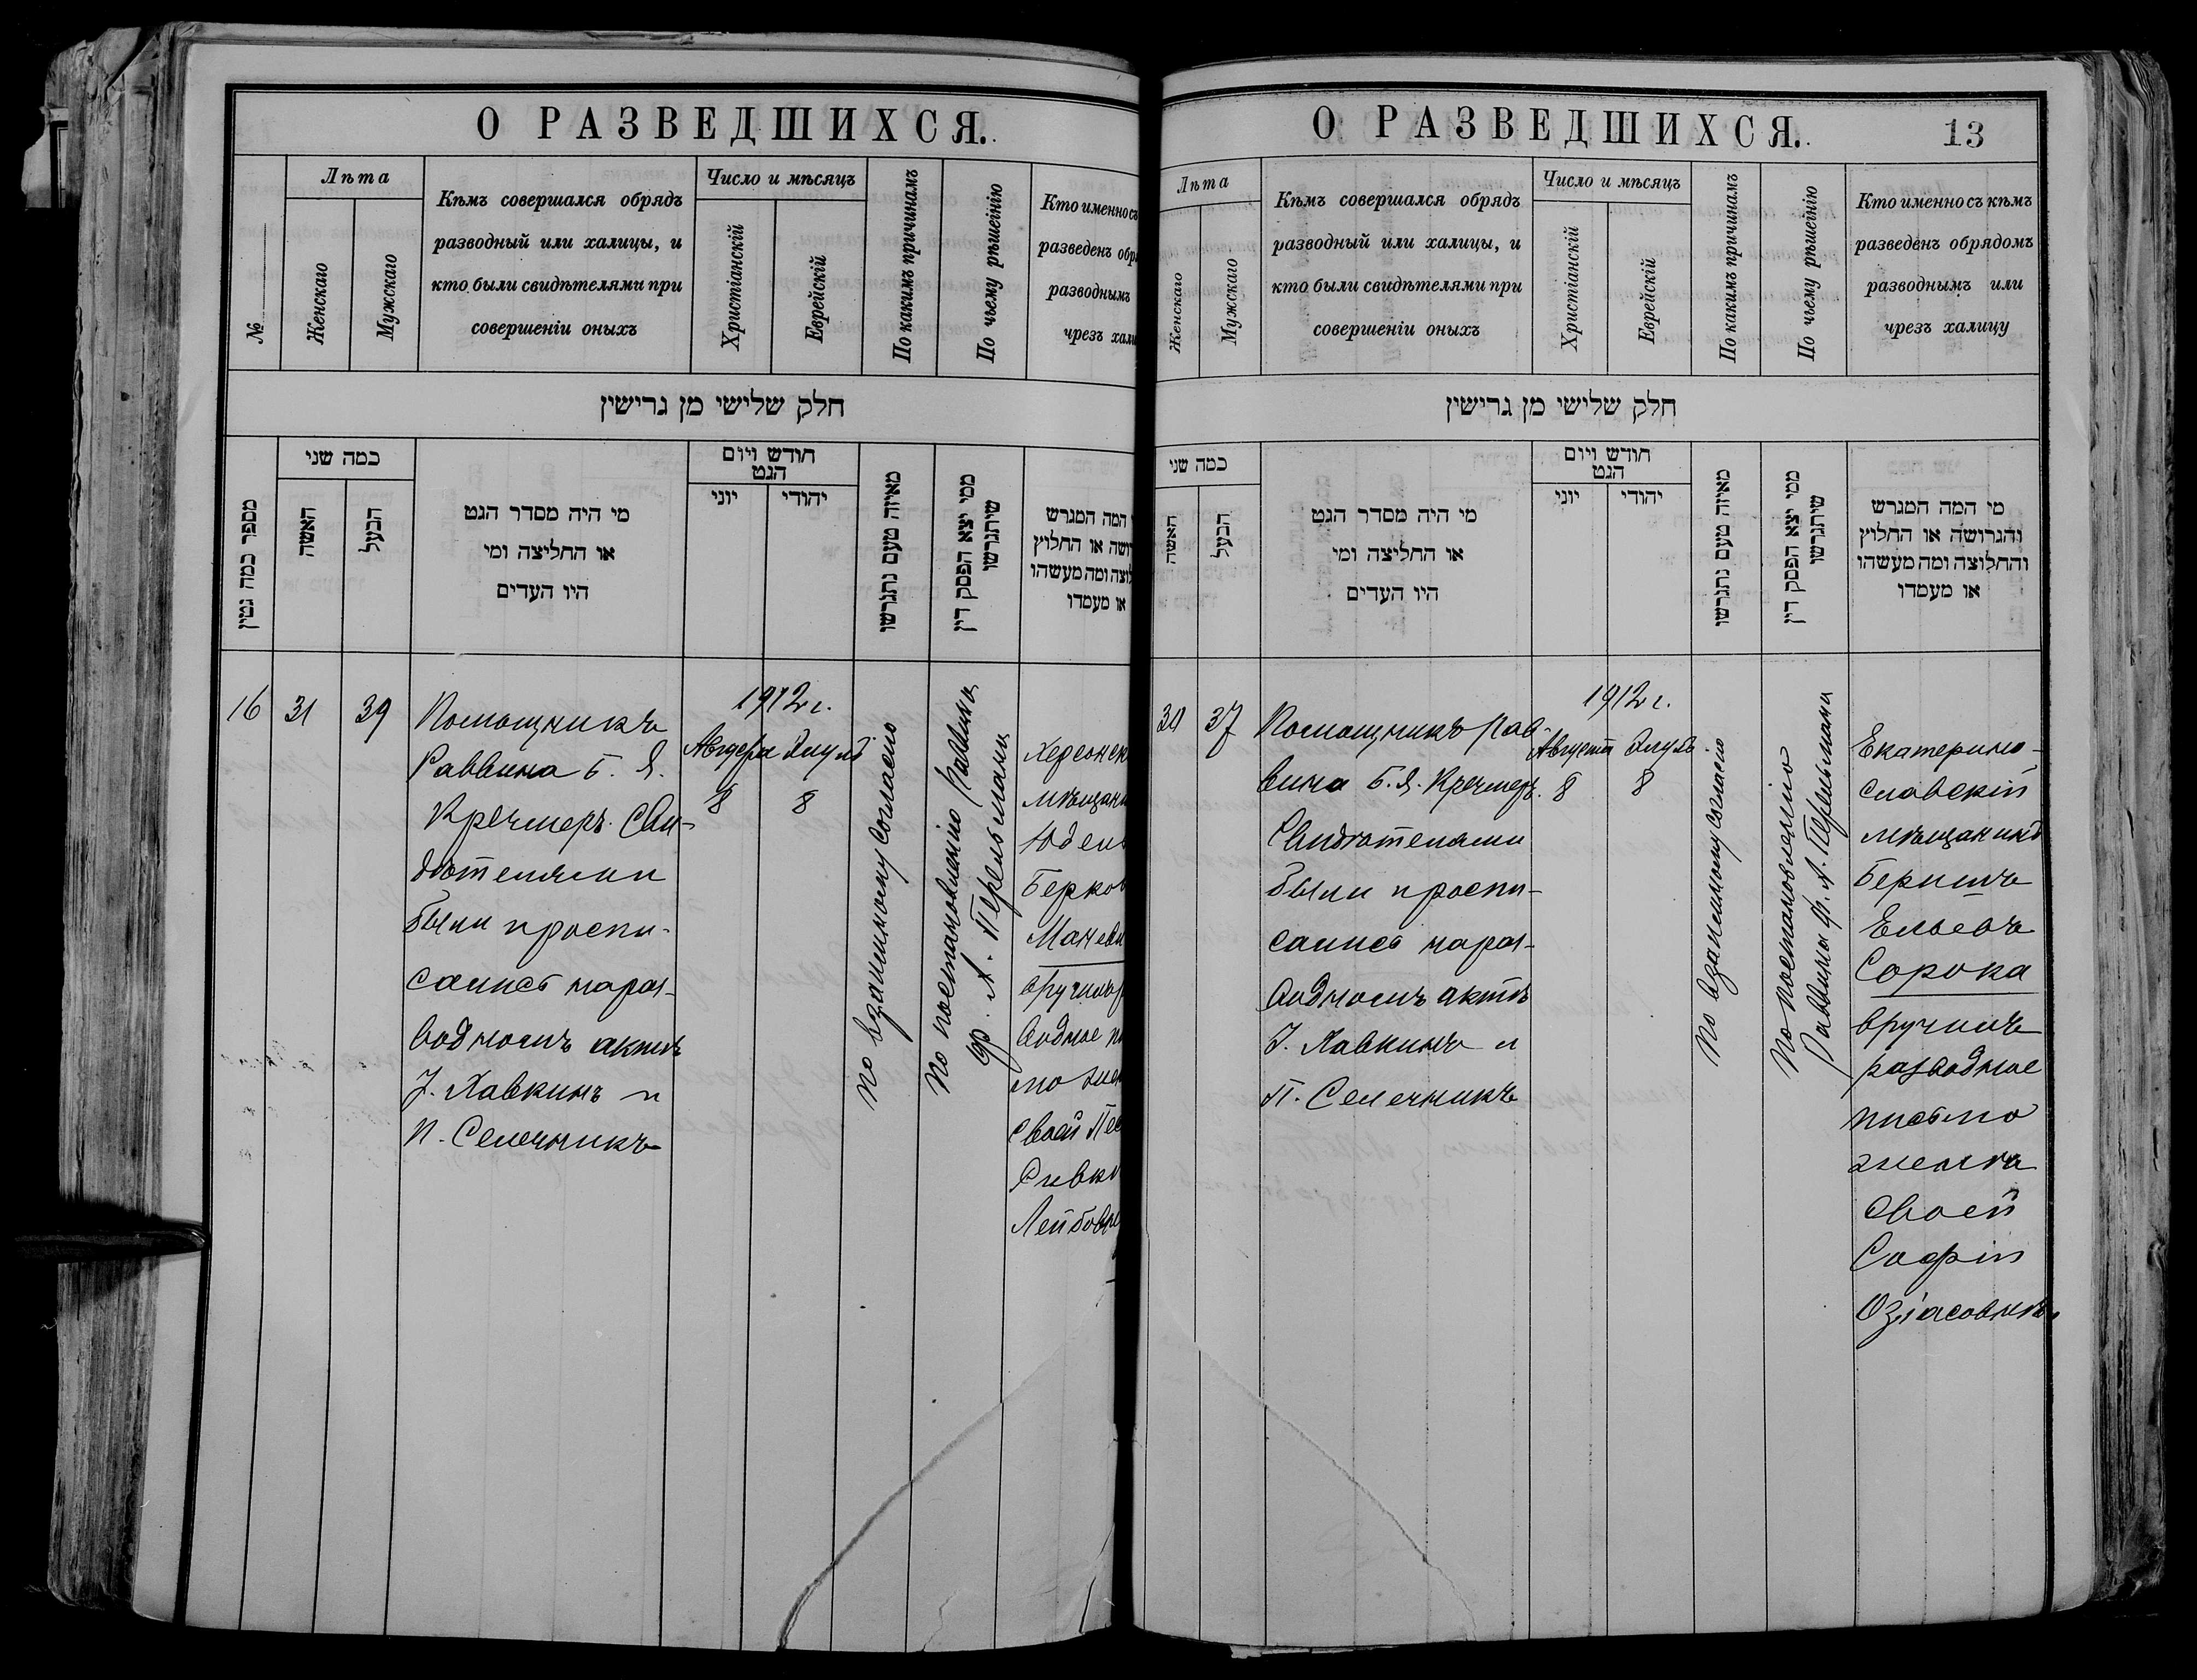 О РАЗВЕДШИХСЯ.
№
Лѣта
Женскаго
Мужскаго
Кѣмъ совершался обрядъ
разводный или халицы, и
кто были свидѣтелями при
совершеніи оныхъ
Число и мѣсяцъ
Христіанскій
Еврейскій
По какимъ причинамъ
По чьему рѣшеінію
Кто именно съ
разведенъ обр
разводнымъ
чрезъ хали
חלק שלישי מן גרישין
מספר כמה גטין
כמה שני
האשה
הבעל
מי היה מסדר הגט
או החליצה ומי
היו העדים
חודש ויום
הגט
יוני
יהודי
מאיזה טעם נתגרשו
ממי יצא הפסק דין
שיתגרשו
המה המגרש
ושה או החלוץ
לוצה ומה מעשהו
או מעמדו
16
31
39
Помощникъ
Раввина Б. Я.
Кречмеръ. Сви-
дѣтелями
были проспи-
савшіе
водномъ актѣ
І. Хавкинъ и
П. Селечникъ
1912 г.
Августа Элулъ
8 8
По взаимному согласію
По постановленію Раввина
Ф. А. Перельмана
Херсонск
мѣщани
Юдель
Берков
Маневи
вручилъ р
водное п
мо жен
своей Пес
Сивки
Лейбовн
О РАЗВЕДШИХСЯ.
13
Лѣта
Женскаго
Мужскаго
Кѣмъ совершался обрядъ
разводный или халицы, и
кто были свидѣтелями при
совершеніи оныхъ
Число и мѣсяцъ
Христіанскій
Еврейскій
По какимъ причинамъ
По чьему рѣшеінію
Кто именно съ кѣмъ
разведенъ обрядомъ
разводнымъ или
чрезъ халицу
חלק שלישי מן גרישין
כמה שני
האשה
הבעל
מי היה מסדר הגט
או החליצה ומי
היו העדים
חודש ויום
הגט
יוני
יהודי
מאיזה טעם נתגרשו
ממי יצא הפסק דין
שיתגרשו
מי המה המגרש
והגרושה או החלוץ
והחלוצה ומה מעשהו
או מעמדו
30
37
Помощникъ Рав-
вина Б. Я. Кречмеръ.
Свидѣтелями
были проспи-
савшіе
водномъ актѣ
І. Хавкинъ и
П. Селечникъ
1912 г.
Августа Элулъ
8 8
По взаимному согласію
По постановленію
Раввина Ф. А. Перельмана
Екатерино-
славскій
мѣщанинъ
Беркинъ
Ельевъ
Сорока
вручилъ
разводное
письмо
женѣ
своей
Софіи
Озіасовнѣ